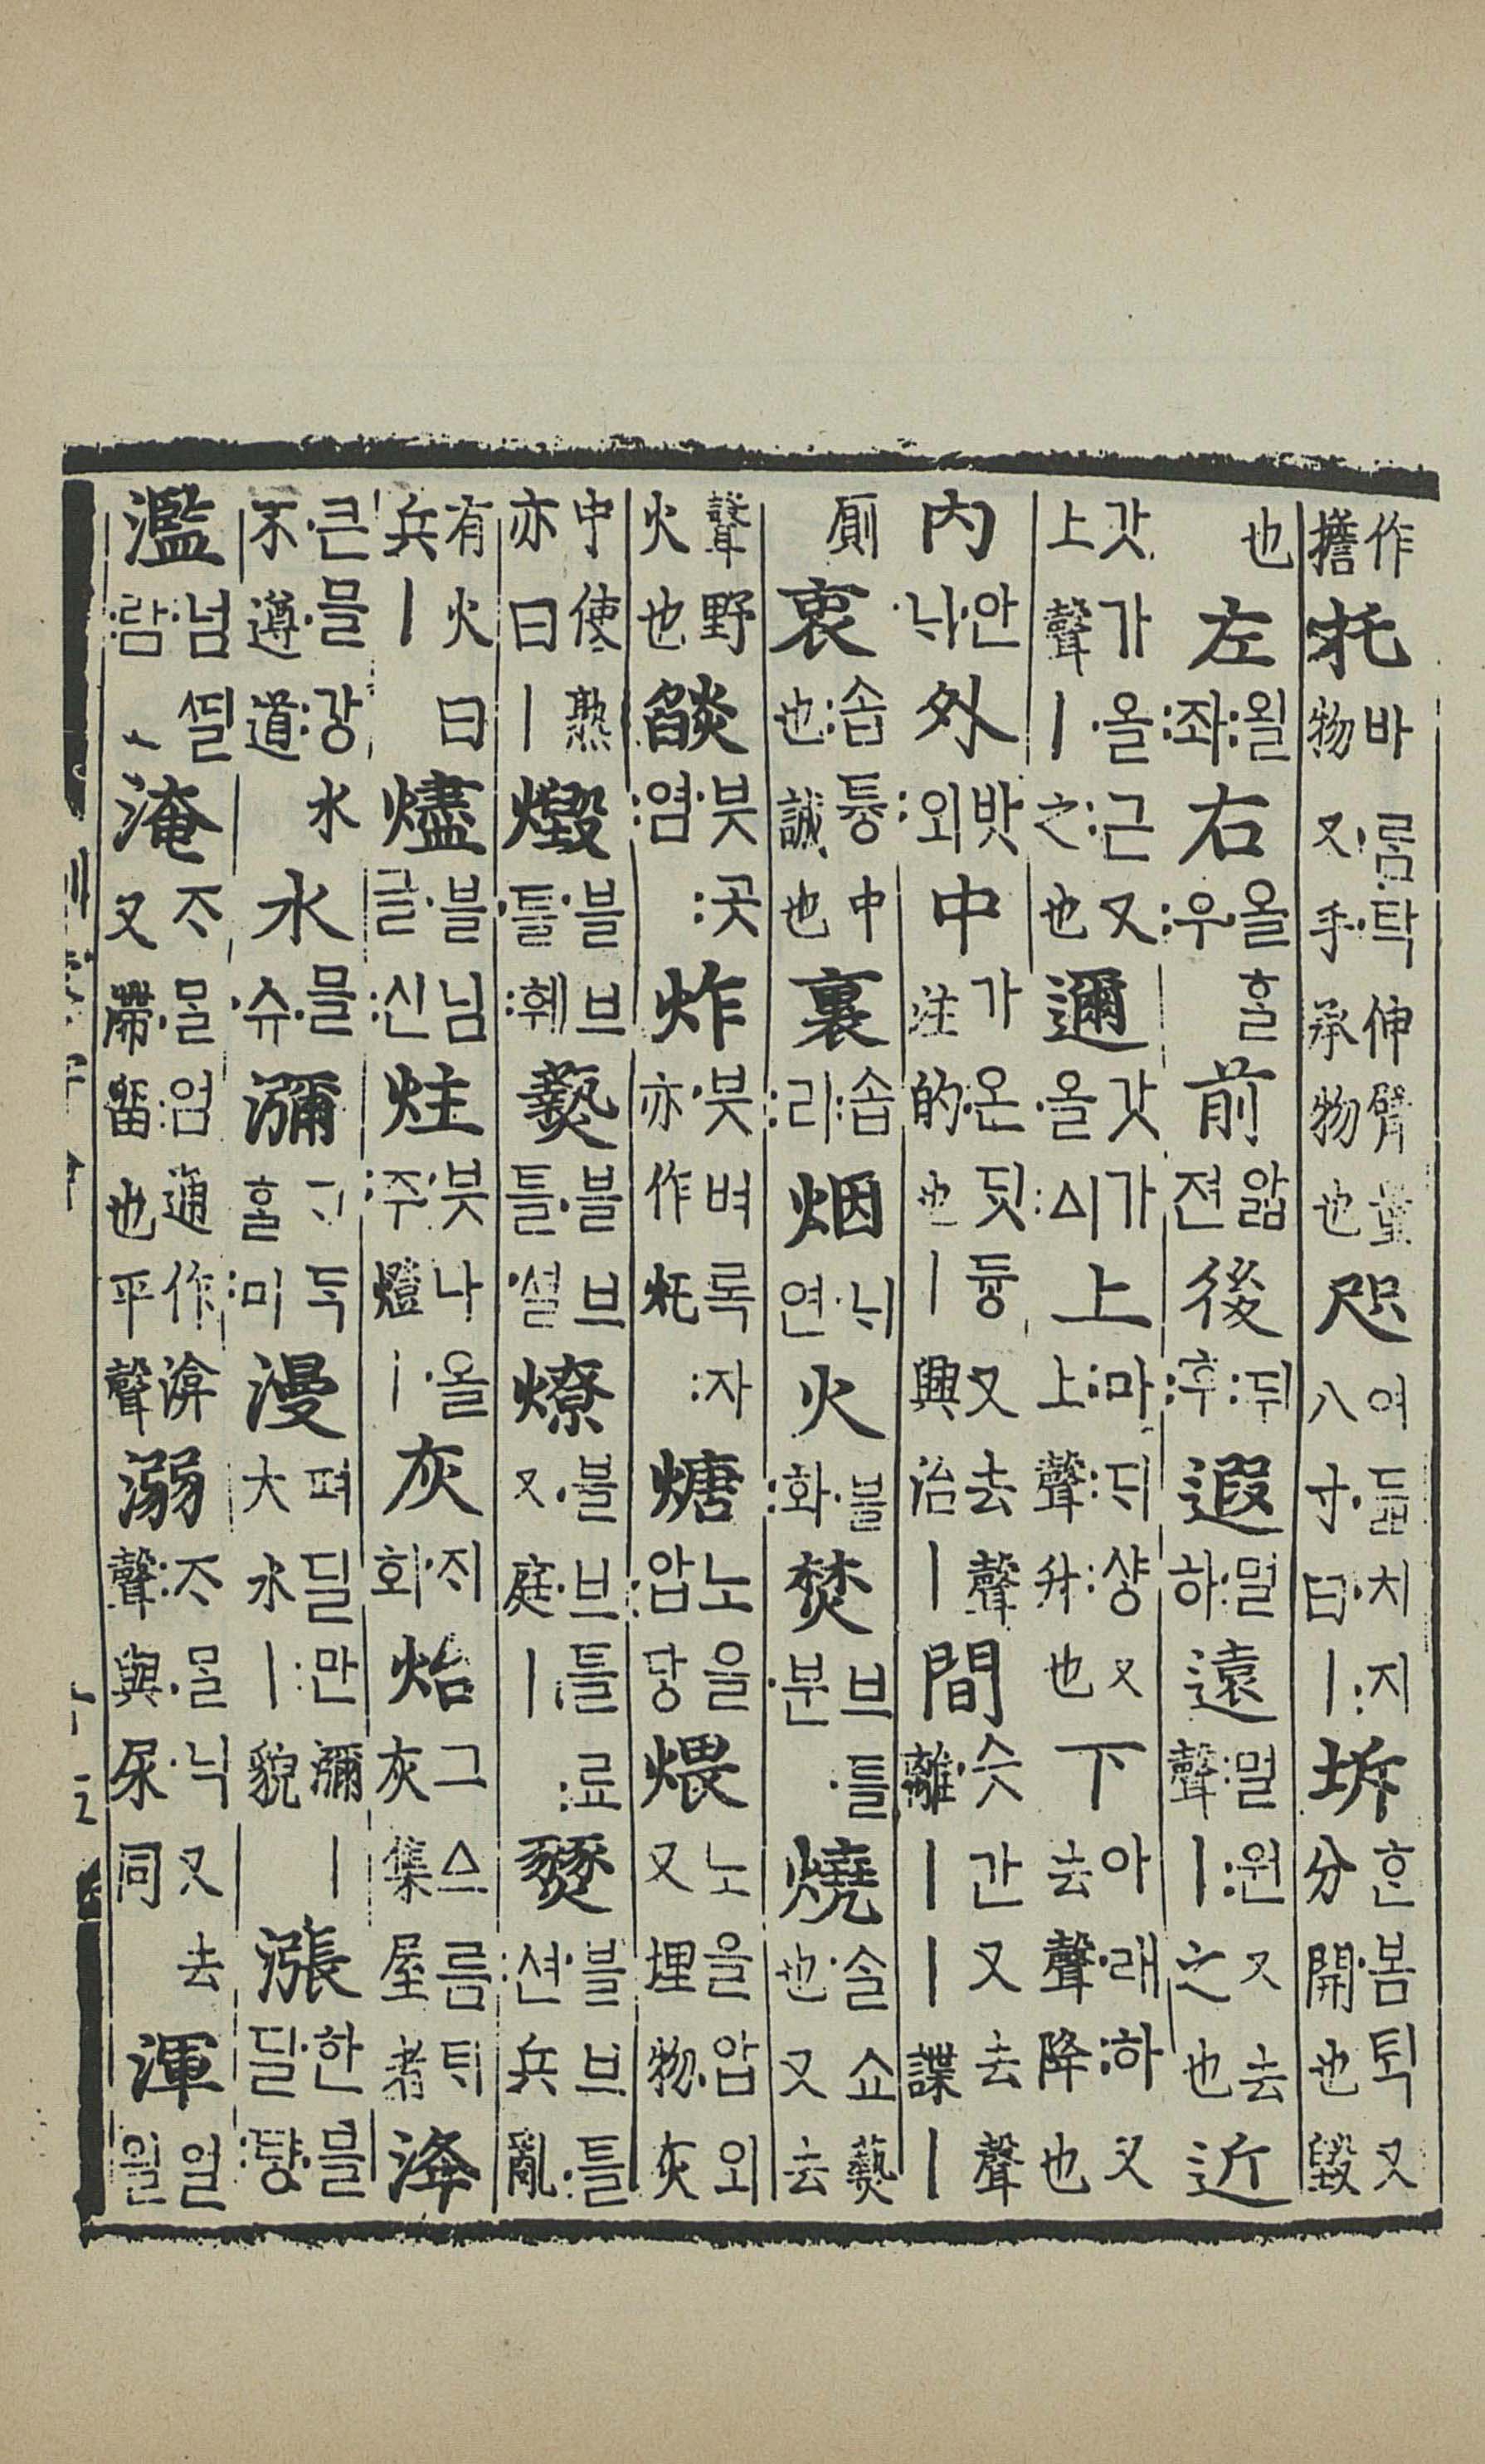 作擔托바롬탁伸臂量物又手承物也咫여듧치지八寸曰丨坼흔봄퇵又分開也毁
也左욀좌右올ᄒᆞᆯ우前앏젼後뒤후遐멀하遠멀원又去聲丨之也近
갓가올근又上聲丨之也邇갓가올ᅀᅵ上마ᄃᆡ샹又上聲升也下아래하又去聲降也
內안ᄂᆡ外밧외中가온딋듕又去聲注的也丨興治丨間슷간又去聲離丨丨諜丨
廁衷솝튱中也誠也裏솝리烟ᄂᆡ연火블화焚브틀분燒ᄉᆞᆯ쇼爇也又去
聲野火也燄븟곳염炸븟벼록자亦作煻노을압당煨노을압외又埋物灰
中使熟亦曰丨燬블브틀훼爇블브틀셜燎블브틀료又庭丨燹블브틀션兵亂
有火曰兵丨燼블님글신炷븟나올주燈丨灰ᄌᆡ회炲그ᅀᅳ름ᄐᆡ灰集屋者洚
큰믈강水不遵道水믈슈瀰ᄀᆞᄃᆞᆨᄒᆞᆯ미漫펴딜만瀰丨大水丨貌漲한믈딜턍
濫넘ᄢᅵᆯ람淹ᄌᆞᄆᆞᆯ엄通作渰又滯畱也平聲溺ᄌᆞᄆᆞᆯ닉又去聲與尿同渾얼읠